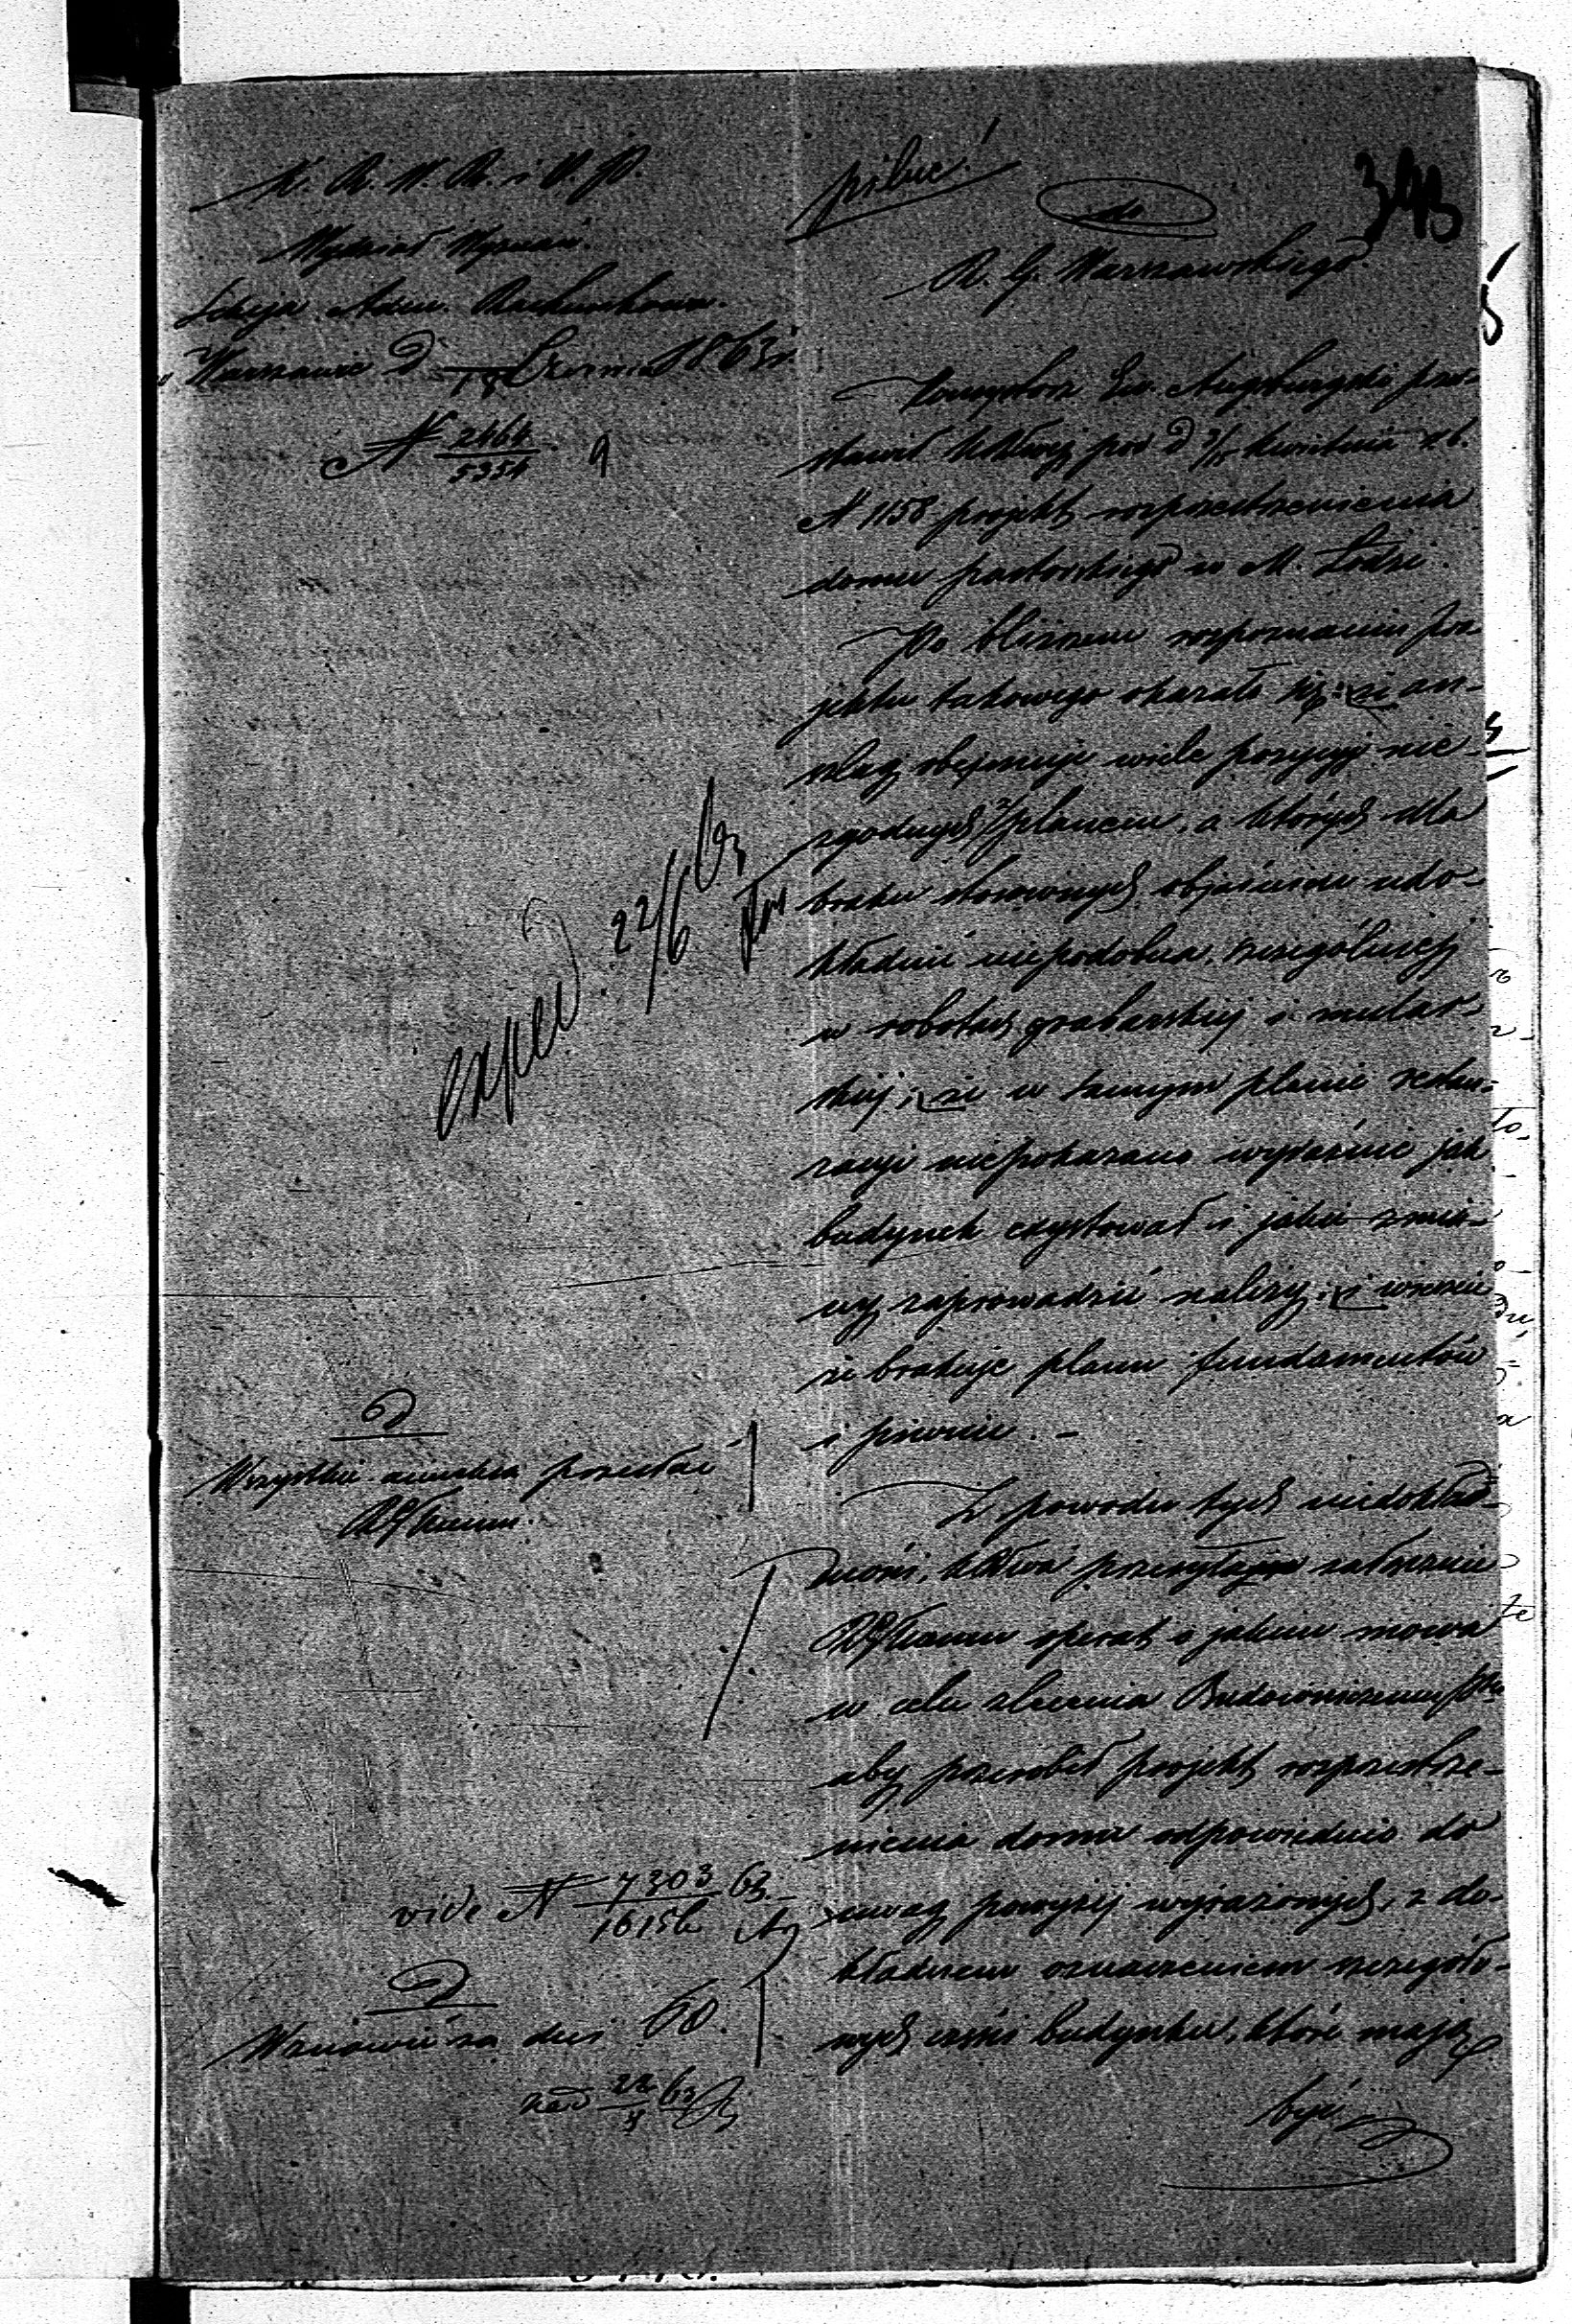 K. R. W. R. i O. P.
Wydział Wyznań.
Sekcja Adm. Rachunkowa.
w Warszawie D 18 Czerwca 1863 r.
N 2464/5354
pilne!
393
do
R. G. Warszawskiego
Konsystorz Ew. Augsburgski przed-
stawił KRWej pod D 3/15 kwietnia rb.
N 1158 projekt rozprzestrzenienia
domu pastorskiego w M. Łodzi.
Po bliższem rozpoznaniu pro-
jektu takowego okazało się: że an-
szlag obejmuje wiele pozycyj nie-
zgodnych z planem, a których dla
braku stosownych objaśnień udo-
kładnić niepodobna, szczególniej
w robotach grabarskiej i mular-
skiej; że w samym planie
niepokazano wyraźnie jak
budynek exystował i jakie zmia-
ny zaprowadzić należy; i wreszcie
że brakuje planu fundamentów
i piwnic. -
Z powodu tych niedokład-
ności, KRWa przesyłając załącznie
RGbernu operat o jakim mowa
w celu zlecenia Budowniczemu Ptu
aby przerobił projekt rozprzestrze-
nienia domu odpowiednio do
uwag powyżej wyrażonych, z do-
kładnem oznaczeniem szczegóło-
wych części budynku, które mają
być
exped. 22/6 63
D
Wszystkie annexa przesłać
RGbernu.
vide N 7303/16156 63
D
Wznowić za dni 60.